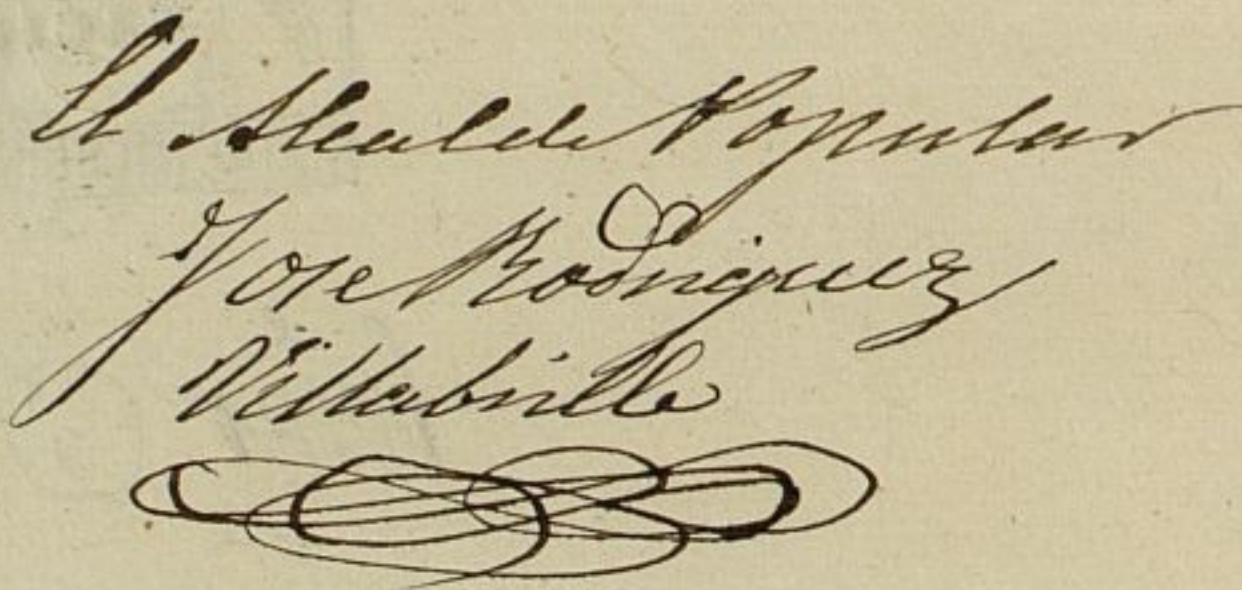 El Alcalde Popular
Jose Rodriguez
Villabrille